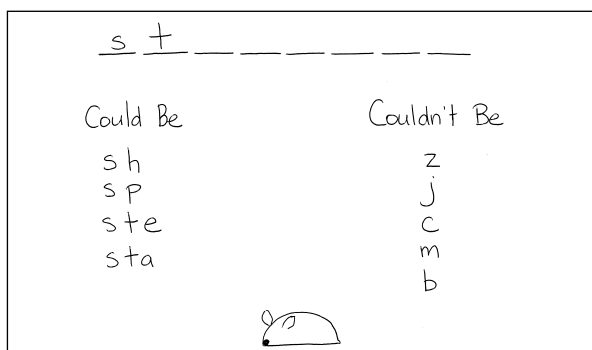 s t _ _ _ _ _ _ _ _
Could Be
sh
sp
ste
sta
Couldn't Be
z
j
c
m
b